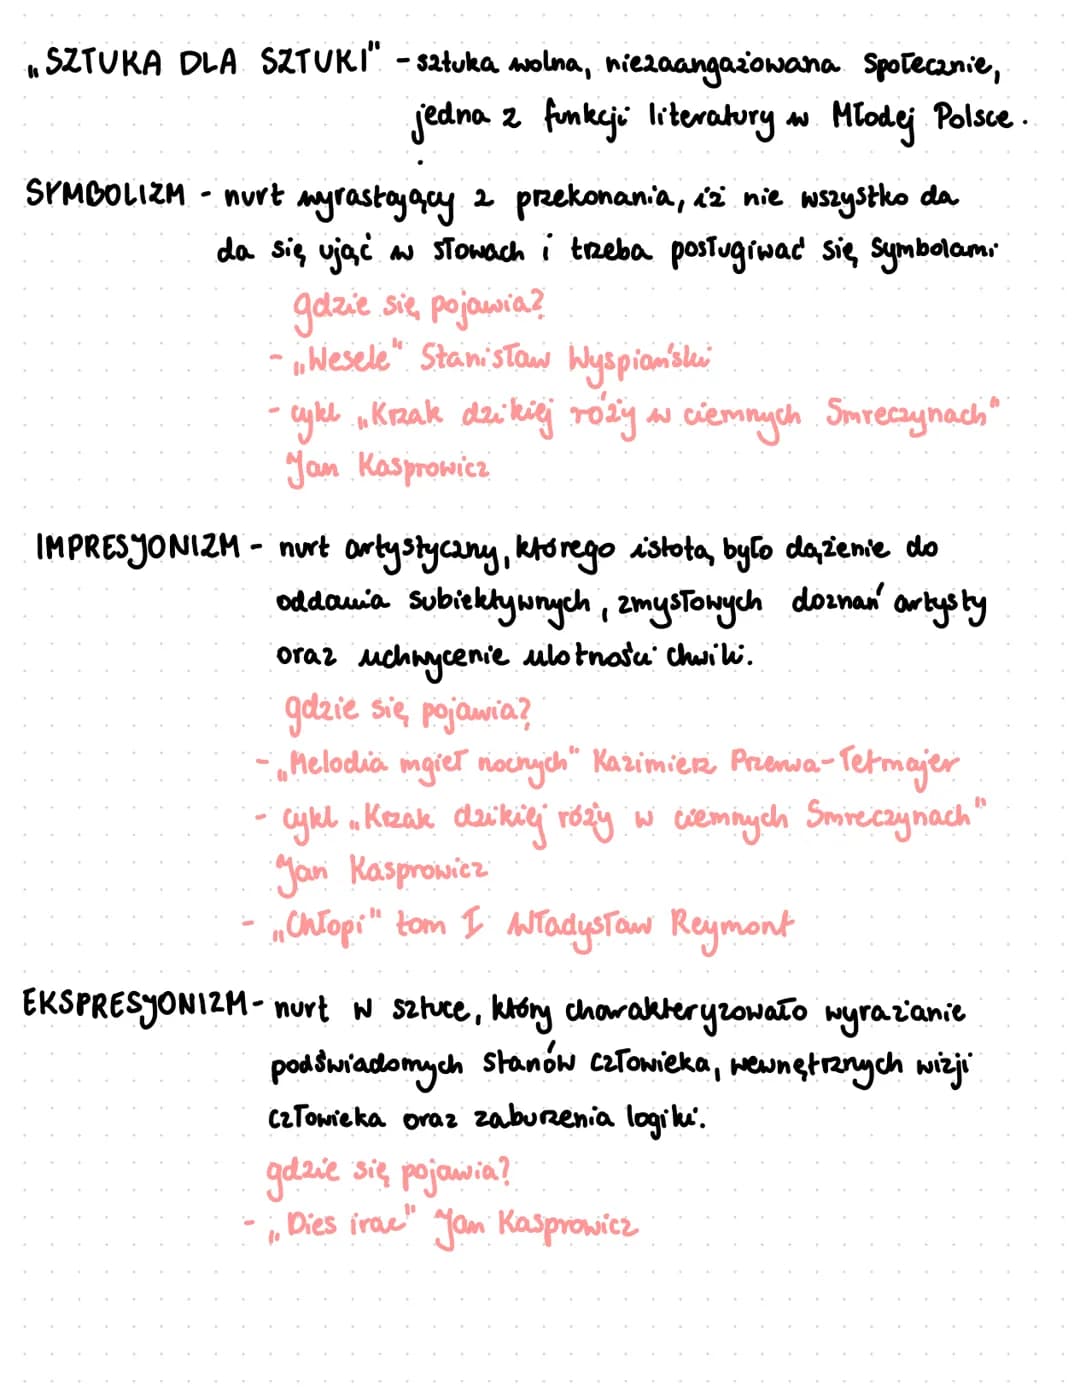 „SZTUKA DLA SZTUKI" - sztuka wolna, niezaangażowana społecznie,
jedna z funkcji literatury w Młodej Polsce.
SYMBOLIZM - nurt wyrastający z przekonania, iż nie wszystko da
da się ująć w słowach i trzeba posługiwać się symbolami
gdzie się pojawia?
- „Wesele" Stanisław Wyspiański
- cykl „Krzak dzikiej róży w ciemnych Smreczynach"
Jan Kasprowicz
IMPRESJONIZM - nurt artystyczny, którego istotą było dążenie do
oddania subiektywnych, zmysłowych doznań artysty
oraz uchwycenie ulotności chwili.
gdzie się pojawia?
- „Melodia mgieł nocnych" Kazimierz Przerwa-Tetmajer
- cykl „Krzak dzikiej róży w ciemnych Smreczynach"
Jan Kasprowicz
- „Chłopi" tom I Władysław Reymont
EKSPRESJONIZM - nurt w sztuce, który charakteryzowało wyrażanie
podświadomych stanów człowieka, wewnętrznych wizji
człowieka oraz zaburzenia logiki.
gdzie się pojawia?
- „Dies irae" Jan Kasprowicz